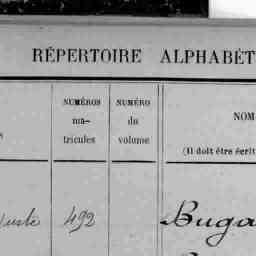 RÉPERTOIRE ALPHABÉT
NUMÉROS
ma-
tricules
NUMÉRO
du
volume
NOM
(Il doit être écrit
uste 492 Buga